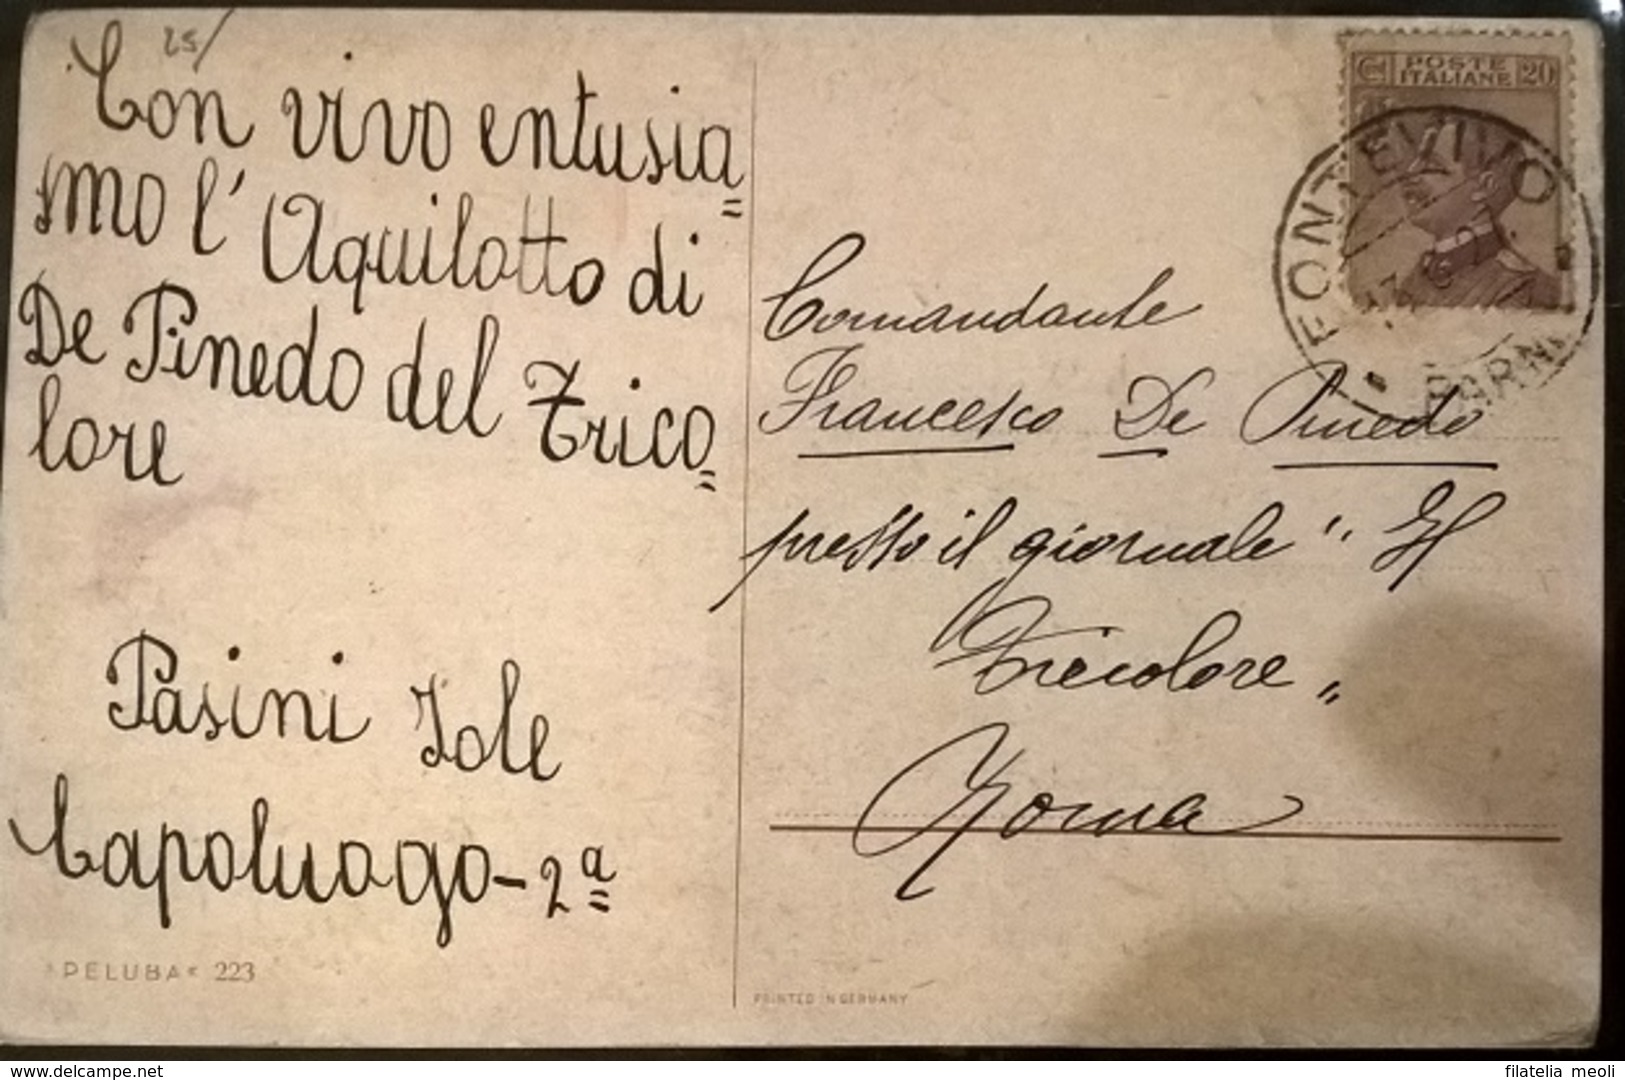 25/
Con vivo entusia=
smo l'Aquilotto di
De Pinedo del Trico=
lore
Pasini Iole
Capoluogo - 2ª
"PELUBA" 223
C POSTE 20
ITALIANE
FONTEVIVO
PARMA
Comandante
Francesco De Pinedo
presso il giornale "Il
Tricolore"
Roma
PRINTED IN GERMANY
www.delcampe.net
filatelia meoli